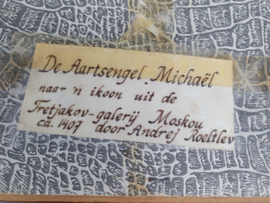 De Aartsengel Michaël
naar 'n ikoon uit de
Tretjakov-galerij Moskou
ca. 1407 door Andrej Roeltlev